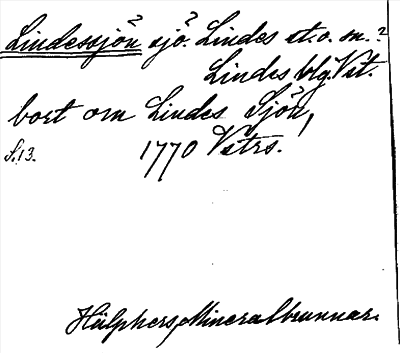 Lindessjön? sjö? Lindes st. o. sn.?
Lindes blg. Vst.
bort om Lindes Sjön,
S. 13. 1770 Vstrs.
Hülphers Mineralbrunnar.